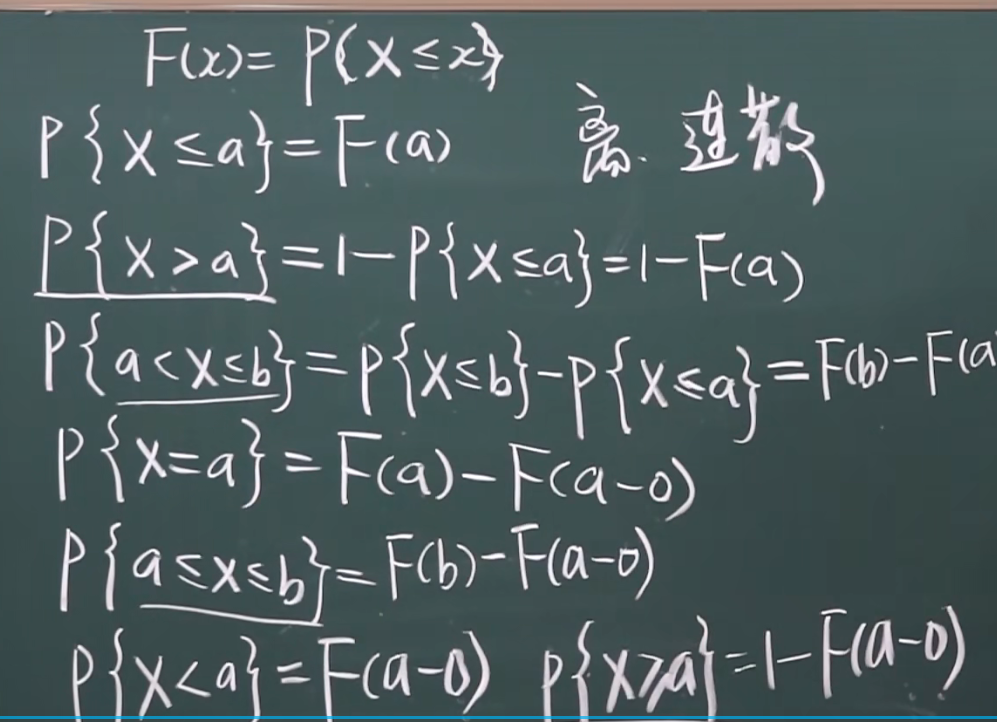 F(x)= P{X≤x}
P{X≤a}=F(a) 离. 连散
P{X>a}=1-P{X≤a}=1-F(a)
P{a<X≤b}=P{X≤b}-P{X≤a}=F(b)-F(a
P{X=a}=F(a)-F(a-0)
P{a≤X≤b}=F(b)-F(a-0)
P{X<a}=F(a-0) P{X≥a}=1-F(a-0)